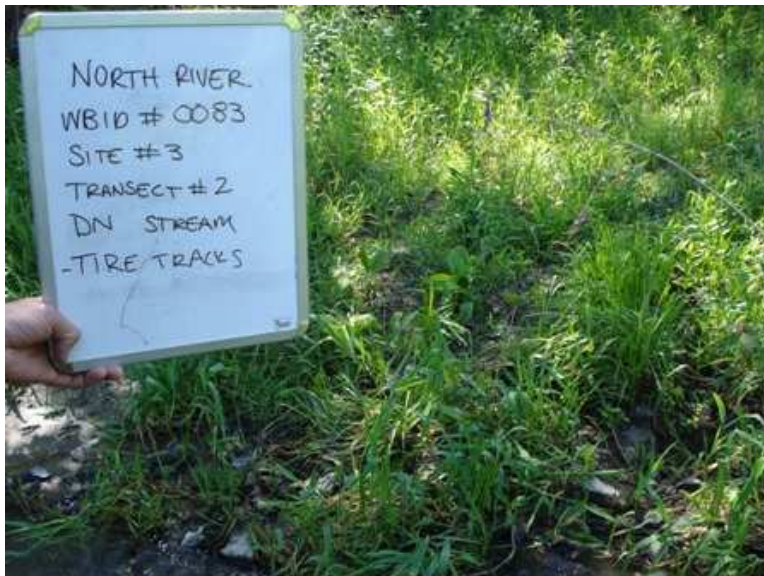 NORTH RIVER
WBID # 0083
SITE #3
TRANSECT #2
DN STREAM
-TIRE TRACKS